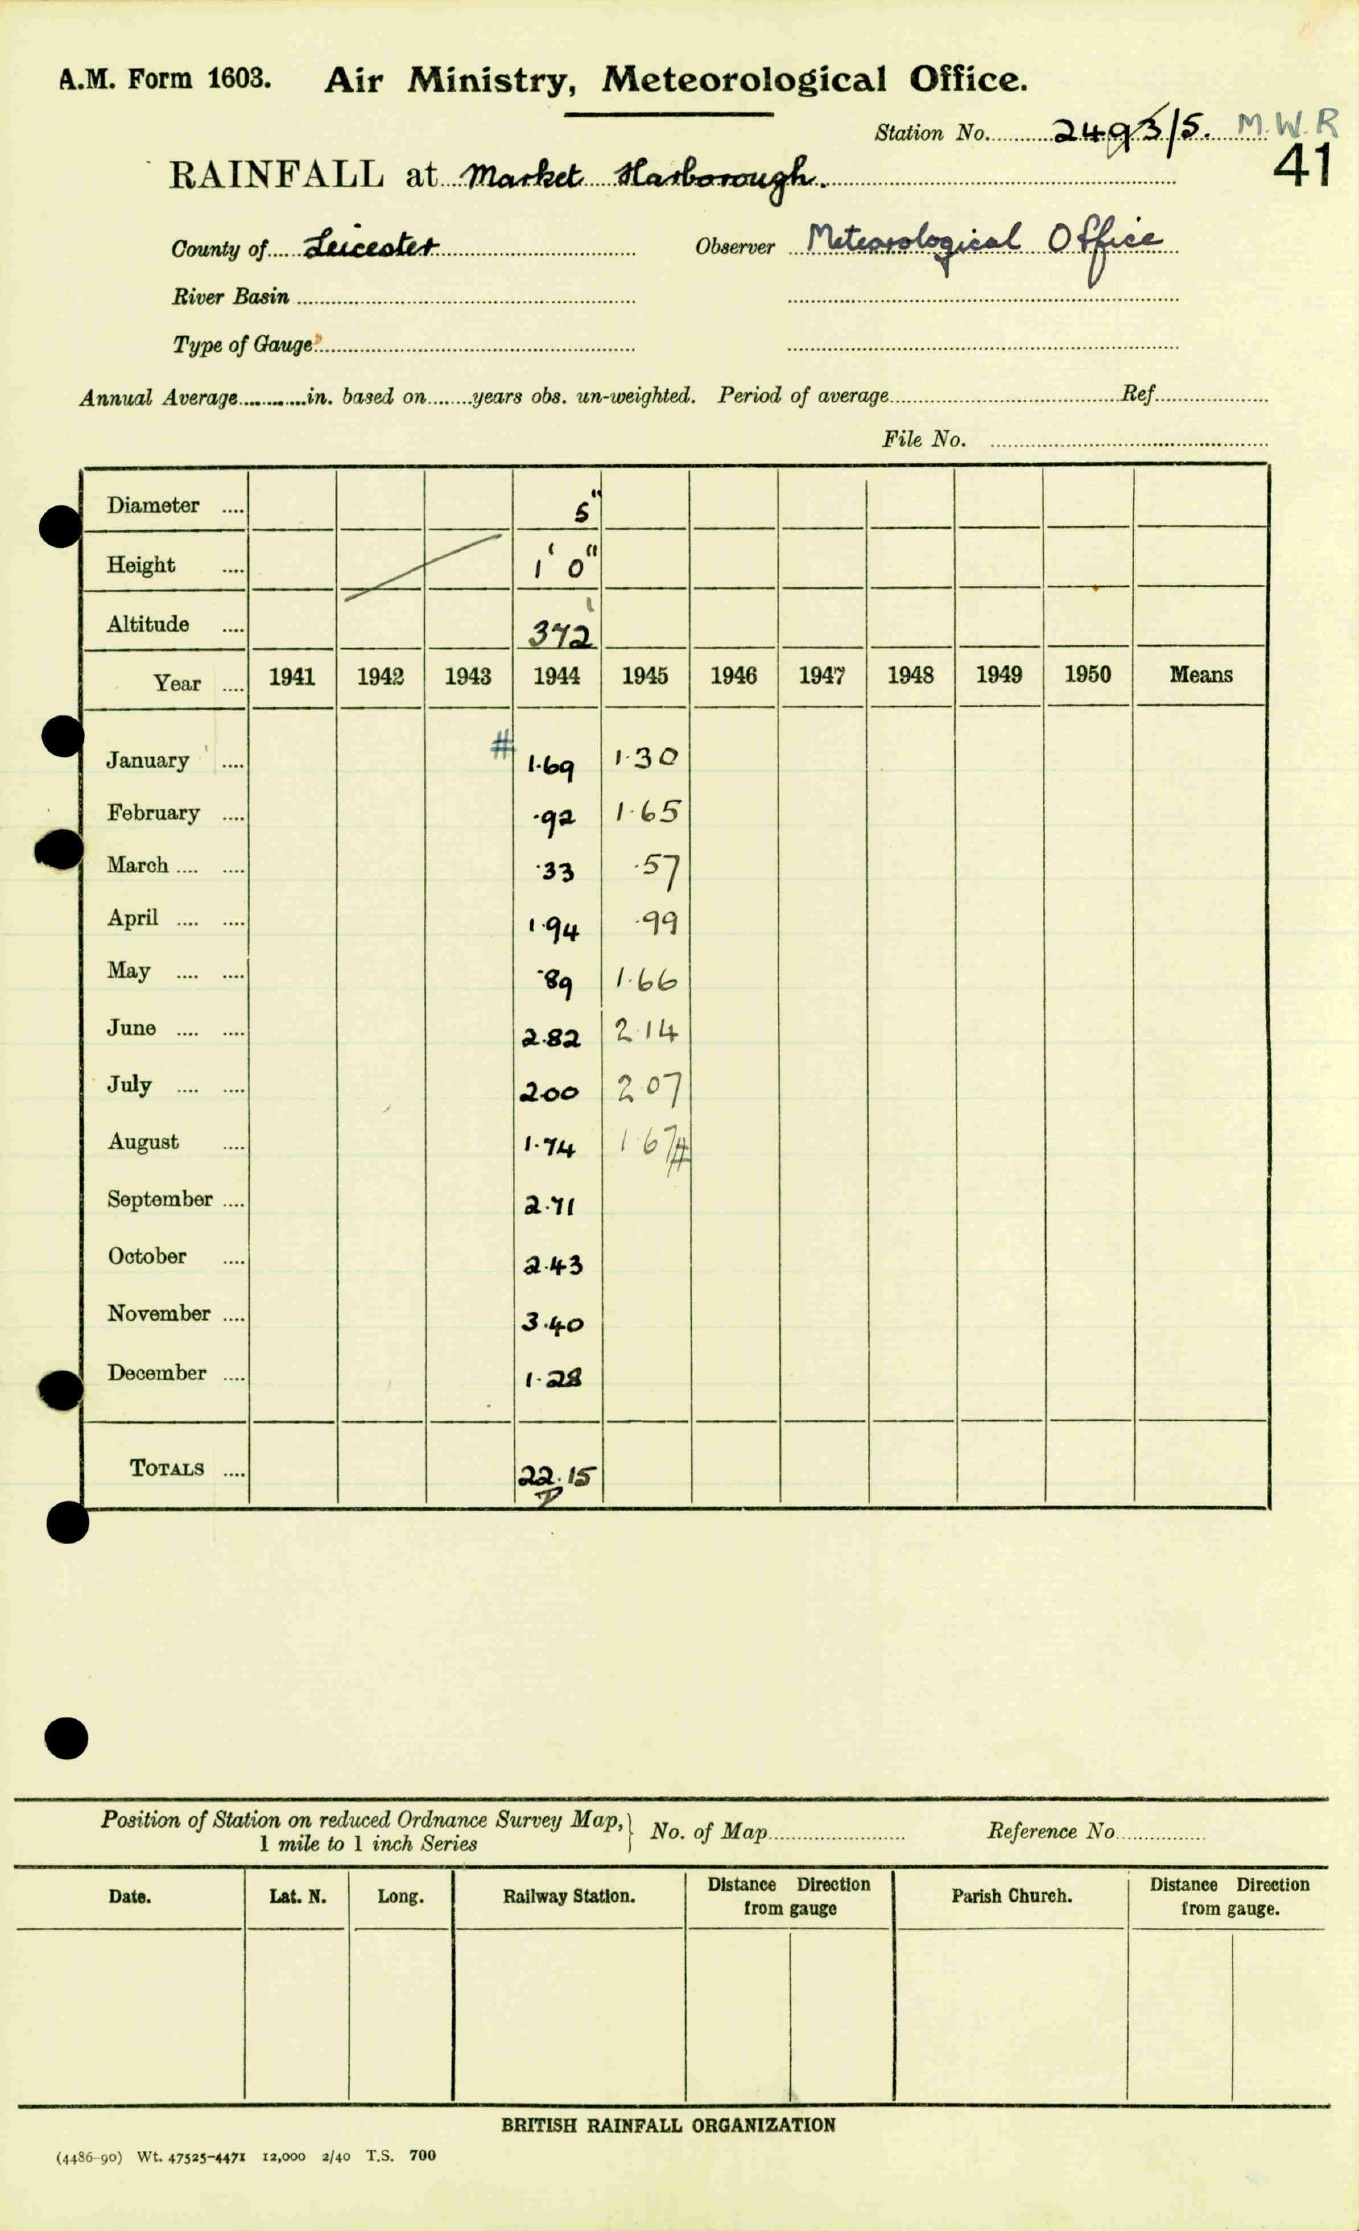 A.M. Form 1603. Air Ministry, Meteorological Office.
Station No. 2493/5. M.W.R
41
RAINFALL at Market Harborough.
County of Leicester Observer Meteorological Office
River Basin
Type of Gauge
Annual Average in. based on years obs. un-weighted. Period of average Ref.
File No.
Diameter .... 5"
Height .... 1' 0"
Altitude .... 372'
Year .... 1941 1942 1943 1944 1945 1946 1947 1948 1949 1950 Means
January .... # 1.69 1.30
February .... .92 1.65
March .... .... .33 .57
April .... .... 1.94 .99
May .... .... .89 1.66
June .... .... 2.82 2.14
July .... .... 2.00 2.07
August .... 1.74 1.67#
September .... 2.71
October .... 2.43
November .... 3.40
December .... 1.28
TOTALS .... 22.15
Position of Station on reduced Ordnance Survey Map, } No. of Map Reference No.
1 mile to 1 inch Series
Date. Lat. N. Long. Railway Station. Distance Direction from gauge Parish Church. Distance Direction from gauge.
BRITISH RAINFALL ORGANIZATION
(4486-90) Wt. 47525-4471 12,000 2/40 T.S. 700